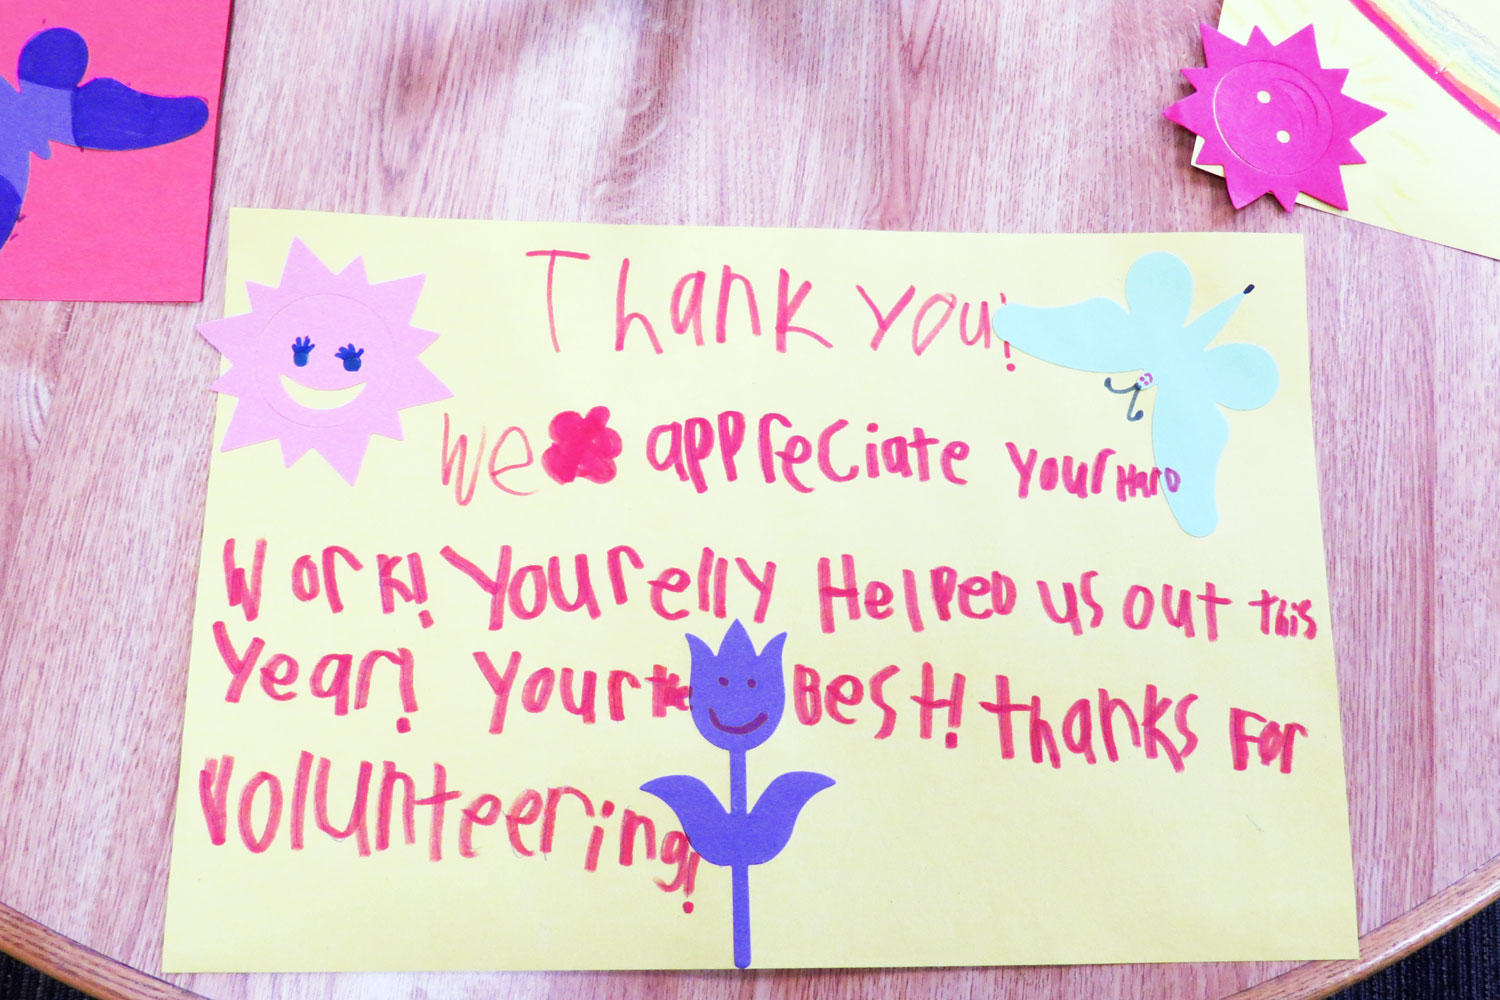 Thank you!
We appreciate your Hard
Work! You relly Helped us out this
Year! Your the Best! thanks For
volunteering!